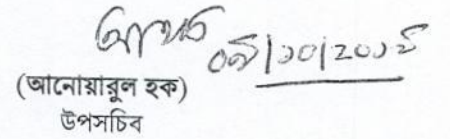 ০৯/১০/২০১৮
(আনোয়ারুল হক)
উপসচিব